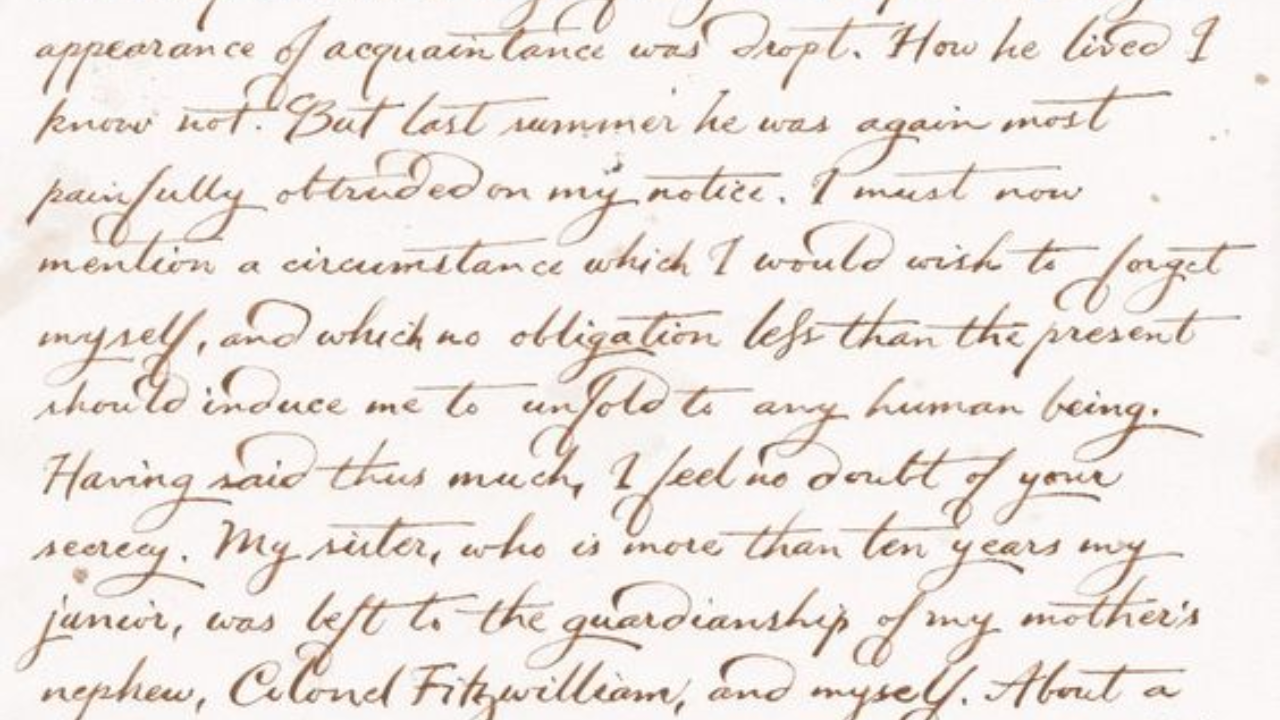 appearance of acquaintance was dropt. How he lived I
know not. But last summer he was again most
painfully obtruded on my notice. I must now
mention a circumstance which I would wish to forget
myself, and which no obligation less than the present
should induce me to unfold to any human being.
Having said thus much, I feel no doubt of your
secrecy. My sister, who is more than ten years my
junior, was left to the guardianship of my mother's
nephew, Colonel Fitzwilliam, and myself. About a